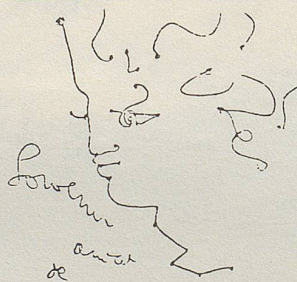 Souvenir
amical
de